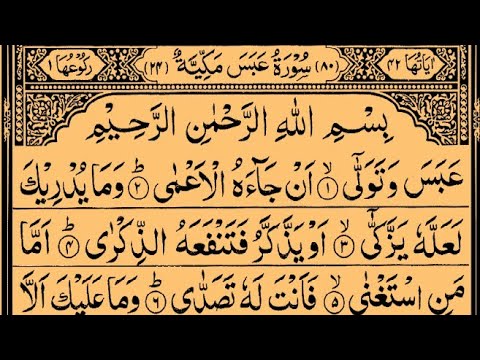 اٰيَاتُهَا ٤٢ (٨٠) سُوْرَةُ عَبَسَ مَكِّيَّةٌ (٢٤) رُكُوْعُهَا ١
بِسْمِ اللّٰهِ الرَّحْمٰنِ الرَّحِيْمِ
عَبَسَ وَتَوَلّٰٓى ۙ﴿١﴾ اَنْ جَآءَهُ الْاَعْمٰى ؕ﴿٢﴾ وَمَا يُدْرِيْكَ
لَعَلَّهٗ يَزَّكّٰٓى ۙ﴿٣﴾ اَوْ يَذَّكَّرُ فَتَنْفَعَهُ الذِّكْرٰى ؕ﴿٤﴾ اَمَّا
مَنِ اسْتَغْنٰى ۙ﴿٥﴾ فَاَنْتَ لَهٗ تَصَدّٰى ؕ﴿٦﴾ وَمَا عَلَيْكَ اَلَّا